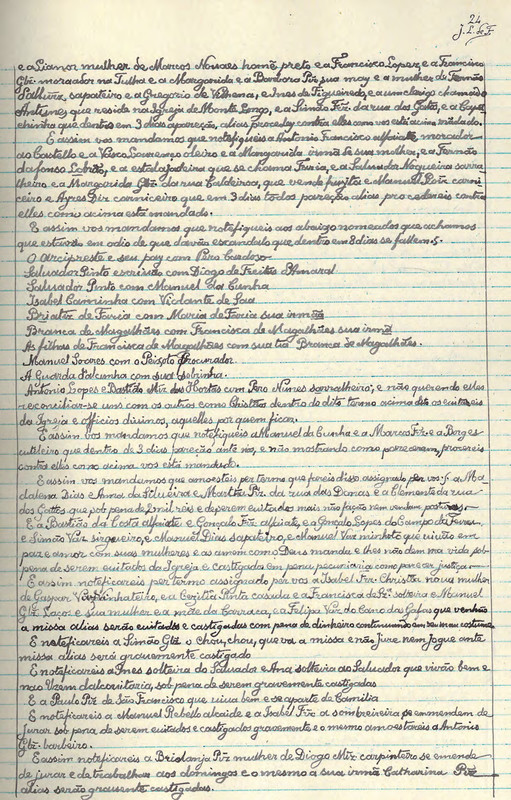 24
J. L. de F.
e a Lianor mulher de Marcos Novaes homẽ preto e a Francisco Lopez, e a Francisco
Glz. morador na Tulha e a Margarida e a Barbora Piz sua may e a mulher de Fernão
sapateiro e a Gregorio de Vilhena, e Ines de Figueiredo, e a um clerigo chamado
Antunez que reside na Igreja de Monte Longo, e a Simão Frz. da rua dos Gatos, e a
que dentro em 3 dias apareção, alias proceder contra elles como vos está acima mãdado.
E assim vos mandamos que notefiqueis a Antonio Francisco alfaiate morador
ao Castello e a Vasco Lourenço oleiro e a Margarida irmã de sua molher, e a Fernão
dafonso e a estalajadeira que se chama Faria, e a Salvador Nogueira sarra
lheiro e a Margarida Glz. da rua Caldeiroa, que vende e Manuel Piz. carni
ceiro e Ayres Diz carniceiro que em 3 dias todos pareção alias procedereis contra
elles como acima está mandado.
E assim vos mandamos que notefiqueis aos abaixo nomeados que achamos
que estavão em odio de que davão escandulo que dentro em 8 dias se fallem.s.
O arcipreste e seu pay com Pero Cardoso
Salvador Pinto escrivão com Diogo de Freitas d'Amaral
Salvador Pinto com Manuel da Cunha
Isabel Caminha com Violante de Sousa
Briatiz de Faria com Maria de Faria sua irmãa
Branca de Magalhães com Francisca de Magalhães sua irmã
As filhas de Francisca de Magalhães com sua tia Branca de Magalhães.
Manuel Soares com o Peixoto Procurador
A Guarda com sua sobrinha.
Antonio Lopes e Bastião Miz das Hortas com Pero Nunes sarralheiro; e não querendo elles
reconciliar-se uns com os outros como Christãos dentro do dito termo acima dito os evitareis
da Igreja e officios divinos, aquelles por quem ficar.
E assim vos mandamos que notefiqueis a Manuel da Cunha e a Marcos Frz. e a Borges
cutileiro que dentro de 3 dias pareção ante nos, e não mostrando como pareceram, procereis
contra elles como acima vos está mandado.
E assim vos mandamos que amoesteis per termo que fareis disso assignado por vos .s. a Ma
dalena Dias e Anna da Silveira e Piz. da rua das Donas e a Clemente da rua
dos Gattos que sob pena de 2 mil réis e de serem evitados mais não fação nem vendam
E a Bastião da Costa alfaiate e Gonçalo Frz alfaiate, e a Gonçalo Lopes do Campo da Feira,
e Simão Vaz sirgueiro, e Manuel Dias sapateiro, e Manuel Vaz minhoto que vivão em
paz e amor com suas mulheres e as amem como Deus manda e lhes não dem ma vida sob
pena de serem evitados da Igreja e castigados em pena pecuniaria como parecer justiça
E assim notificareis per termo assignado por vos a Isabel Frz. Christãa nova mulher
de Gaspar e a Cezilia Pinta casada e a Francisca de solteira e Manuel
Glz. e sua mulher e a mãe da Carraca, e a Felipa Vaz do Cano das Gafas que venhão
a missa alias serão evitados e castigadas com pena de dinheiro continuando em seu mau costume.
E notificareis a Simão Glz o Chou, chou, que va a missa e não jure nem jogue ante
missa alias será gravemente castigado
E notificareis a Ines solteira do Salvador e Ana solteira ao Salvador que vivão bem e
não usem dalcovitaria, sob pena de serem gravemente castigadas
E a Paulo Piz de São Francisco que viva bem e se aparte de Camilia
E notificareis a Manuel Rebello alcaide e a Isabel Frz. a sombreireira se emmendem de
jurar sob pena de serem evitados e castigados gravemente e o mesmo amoestareis a Antonio
Glz. barbeiro.
E assim notificareis a Briolanja Piz mulher de Diogo Miz carpinteiro se emende
de jurar e de trabalhar aos domingos e o mesmo a sua irmã Catharina Piz
alias serão gravemente castigadas.